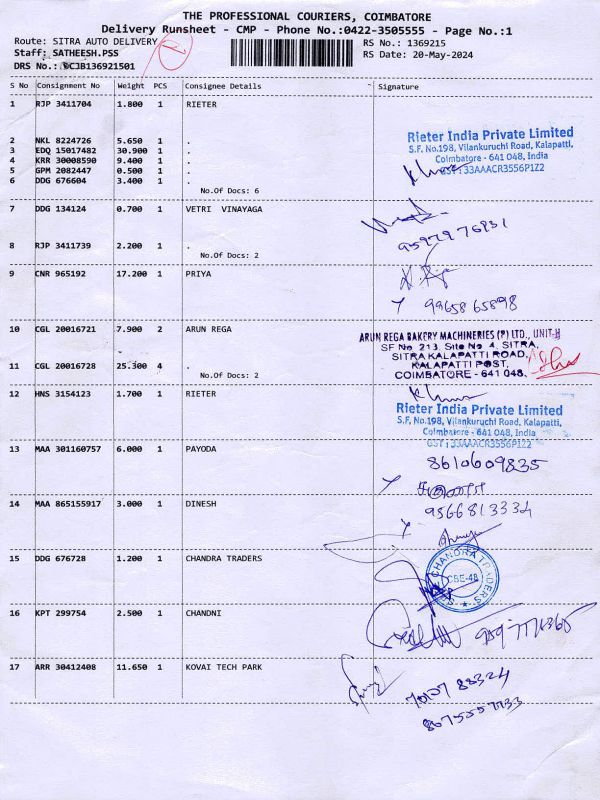 THE PROFESSIONAL COURIERS, COIMBATORE
Delivery Runsheet - CMP - Phone No.:0422-3505555 - Page No.:1
Route: SITRA AUTO DELIVERY
RS No.: 1369215
Staff: SATHEESH.PSS
RS Date: 20-May-2024
DRS No.: DCJB136921501
S No Consignment No Weight PCS Consignee Details Signature
1 RJP 3411704 1.800 1 RIETER
2 NKL 8224726 5.650 1 .
3 EDQ 15017482 30.900 1 .
4 KRR 30008590 9.400 1 .
5 GPM 2082447 0.500 1 .
6 DDG 676604 3.400 1 .
No.Of Docs: 6
Rieter India Private Limited
S.F. No.198, Vilankuruchi Road, Kalapatti,
Coimbatore - 641 048, India
GST:33AAACR3556P1Z2
7 DDG 134124 0.700 1 VETRI VINAYAGA
8 RJP 3411739 2.200 1 .
No.Of Docs: 2
9597976931
9 CNR 965192 17.200 1 PRIYA
9965865898
10 CGL 20016721 7.900 2 ARUN REGA
11 CGL 20016728 25.300 4 .
No.Of Docs: 2
ARUN REGA BAKERY MACHINERIES (P) LTD., UNIT-II
SF No. 213, Site No 4, SITRA,
SITRA KALAPATTI ROAD,
KALAPATTI POST,
COIMBATORE - 641 048.
12 HNS 3154123 1.700 1 RIETER
Rieter India Private Limited
S.F. No.198, Vilankuruchi Road, Kalapatti,
Coimbatore - 641 048, India
GST:33AAACR3556P1Z2
13 MAA 301160757 6.000 1 PAYODA
8610609835
14 MAA 865155917 3.000 1 DINESH
9566813334
15 DDG 676728 1.200 1 CHANDRA TRADERS
CHANDRA TRADERS
CBE-48
16 KPT 299754 2.500 1 CHANDNI
17 ARR 30412408 11.650 1 KOVAI TECH PARK
70107 88324